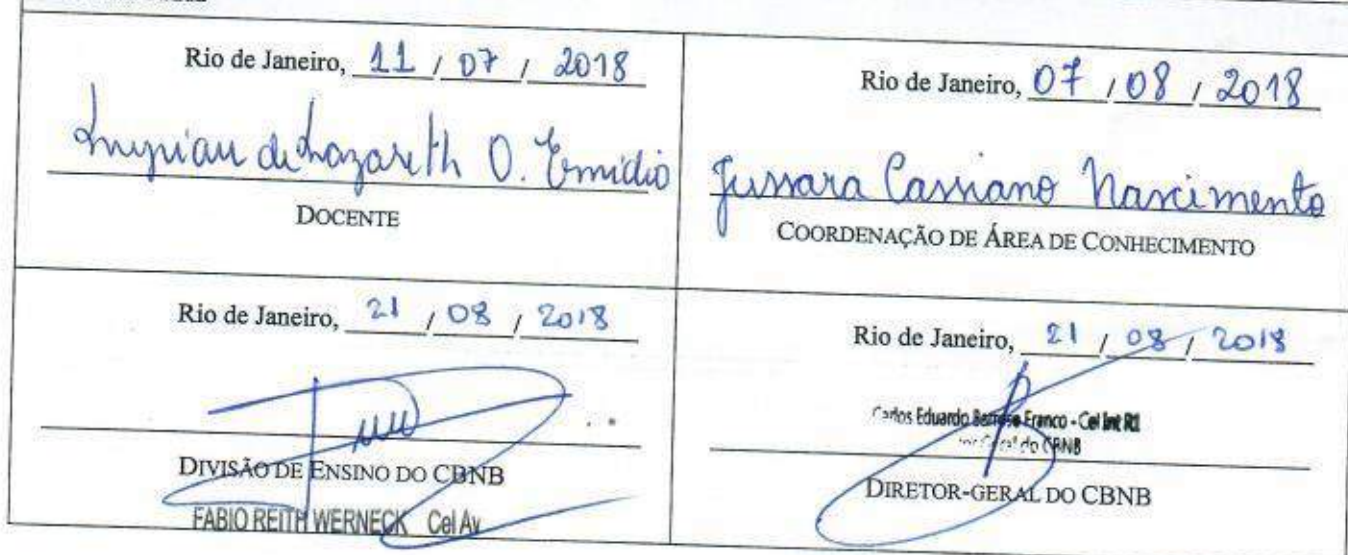 Rio de Janeiro, 11 / 07 / 2018
de Nazareth O. Emidio
DOCENTE
Rio de Janeiro, 07 / 08 / 2018
Jussara Cassiano Nascimento
COORDENAÇÃO DE ÁREA DE CONHECIMENTO
Rio de Janeiro, 21 / 08 / 2018
DIVISÃO DE ENSINO DO CBNB
FABIO REITH WERNECK Cel Av
Rio de Janeiro, 21 / 08 / 2018
Carlos Eduardo Franco - Cel Int R1
do CBNB
DIRETOR-GERAL DO CBNB